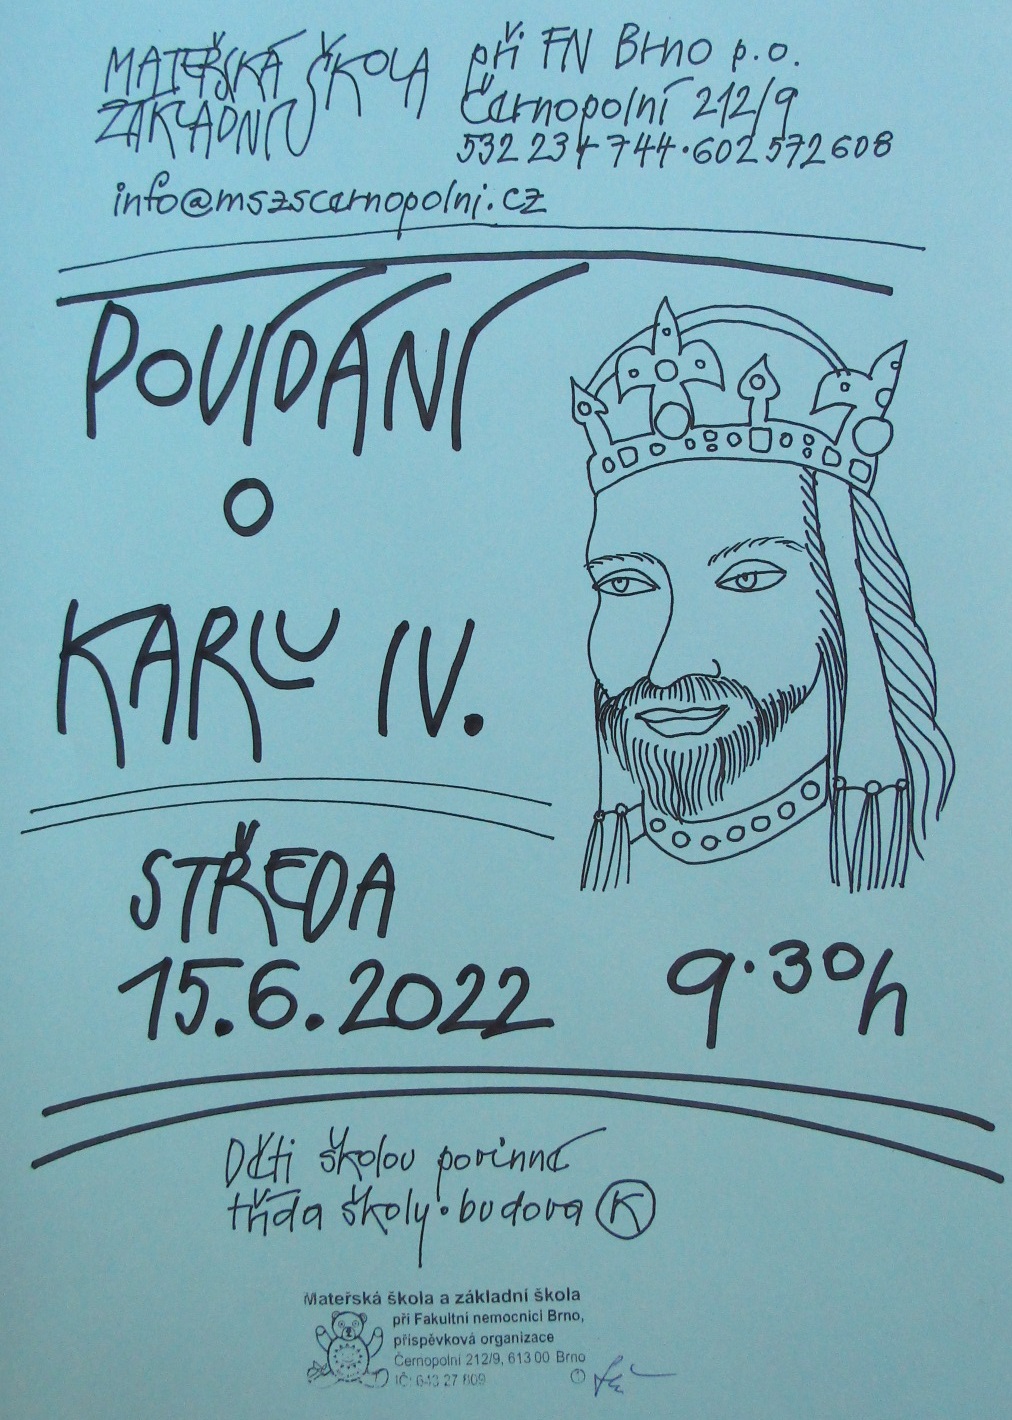 MATEŘSKÁ ŠKOLA při FN Brno p.o.
ZÁKLADNÍ Černopolní 212/9
532 234 744 · 602 572 608
info@mszscernopolni.cz
POVÍDÁNÍ
O
KARLU IV.
STŘEDA
15.6.2022 9·30h
Děti školou povinné
třída školy · budova K
Mateřská škola a základní škola
při Fakultní nemocnici Brno,
příspěvková organizace
Černopolní 212/9, 613 00 Brno
IČ: 643 27 809